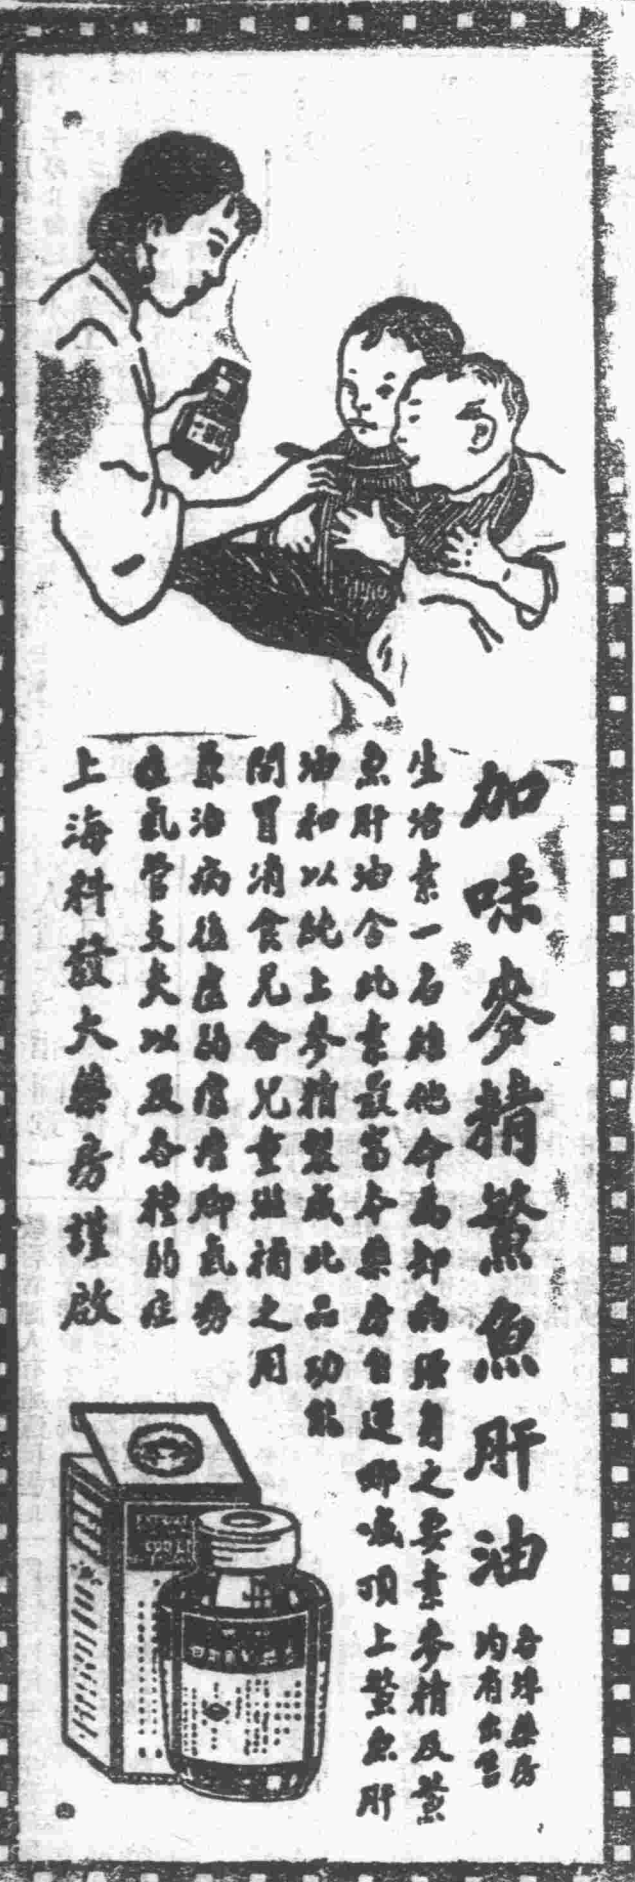 加味麥精鱉魚肝油
各埠藥房
均有出售
生活素一名維他命為却病强身之要素麥精及鱉
魚肝油含此素最富本藥房自運哪威頂上鱉魚肝
油和以純上麥精製成此品功能
開胃消食兄會兄童滋補之用
兼治病後虛弱瘰癧脚氣癆
症氣管支炎以及各種的症
上海科發大藥房謹啟